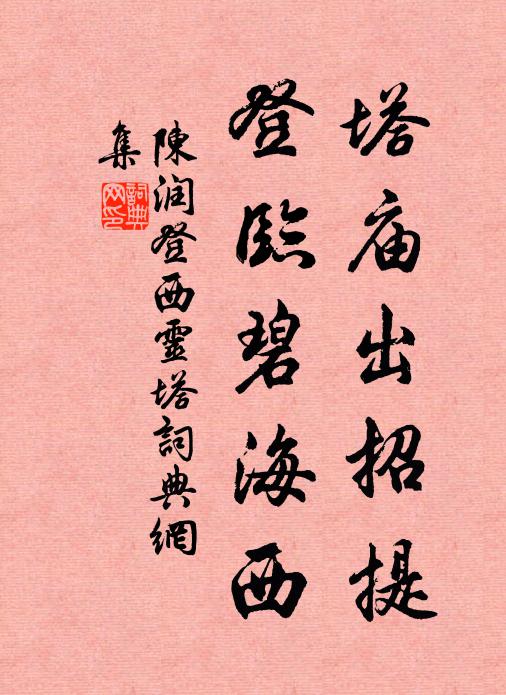 塔庙出招提
登臨碧海西
陳润登西靈塔詞典網
集
詞典
网印